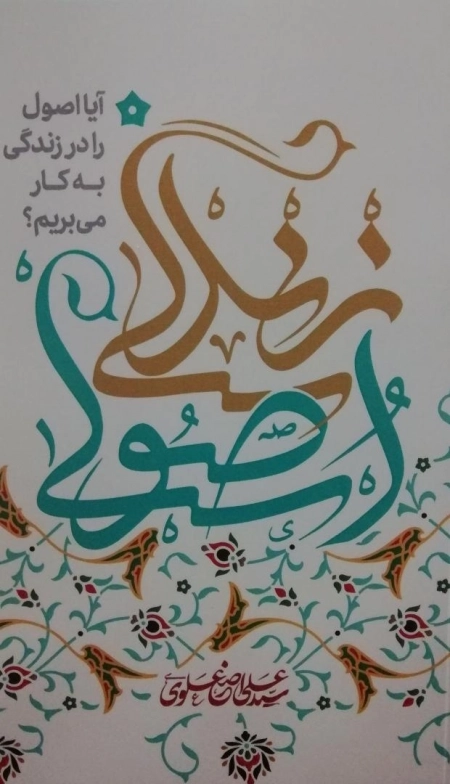 آیا اصول
را در زندگی
به کار
می‌بریم؟
زندگی
اُصولی
سید علی اصغر علوی